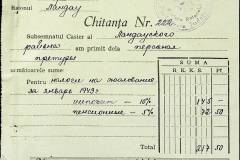 Raionul Ландау
Chitanța Nr. 222
Subsemnatul Casier al Ландауского
района am primit dela персонал
претуры
SUMA
R.K.K.S. Pf
următoarele sume:
Pentru налоги на жалование
за январь 1943 г.
импозит — 10% 145 —
пенсионные — 5% 72 50
Total 217 50